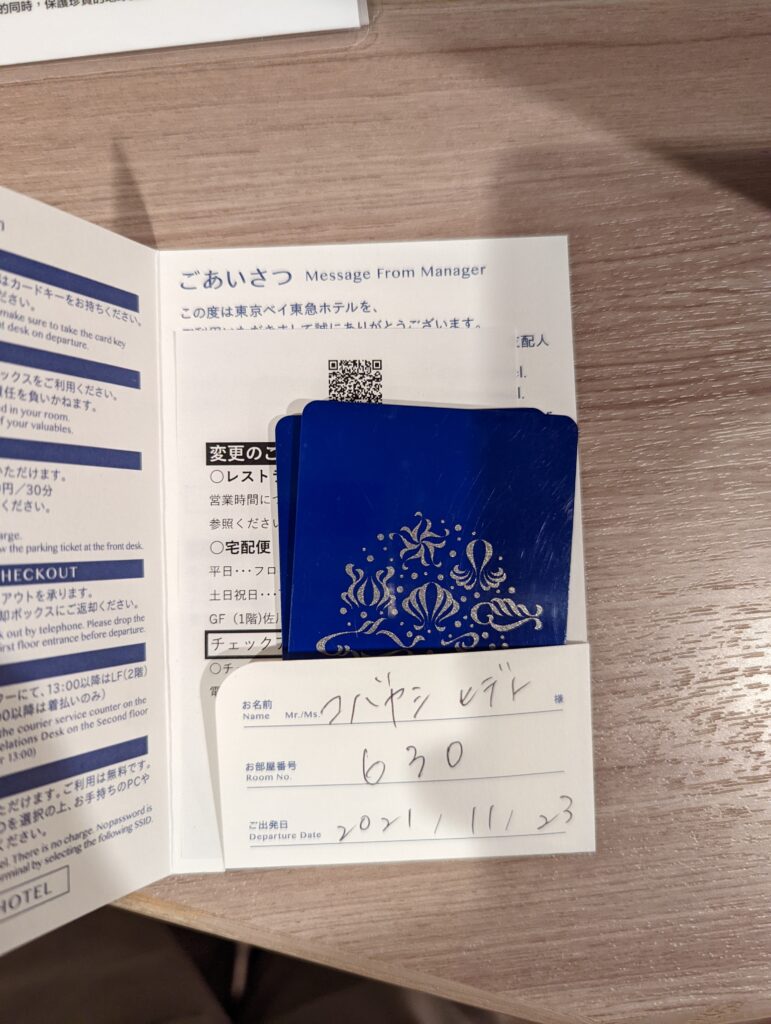 的同時，保護珍貴的地球
はカードキーをお持ちください。
ださい。
make sure to take the card key
nt desk on departure.
ックスをご利用ください。
責任を負いかねます。
d in your room.
of your valuables.
いただけます。
円／30分
ください。
arge.
w the parking ticket at the front desk.
CHECKOUT
アウトを承ります。
却ボックスにご返却ください。
k out by telephone. Please drop the
irst floor entrance before departure.
ーにて、13:00以降はLF(2階)
00以降は着払いのみ)
the courier service counter on the
elations Desk on the Second floor
r 13:00)
ただけます。ご利用は無料です。
つを選択の上、お手持ちのPCや
ください。
el. There is no charge. No password is
rminal by selecting the following SSID.
HOTEL
ごあいさつ Message From Manager
この度は東京ベイ東急ホテルを、
ご利用いただきまして誠にありがとうございます。
支配人
el.
l.
変更のご
○レスト
営業時間に
参照ください
○宅配便
平日･･･フロ
土日祝日･･･
GF（1階)佐
チェック
○チ
電
お名前
Name Mr./Ms. コバヤシ ヒデレ 様
お部屋番号
Room No. 630
ご出発日
Departure Date 2021 / 11 / 23